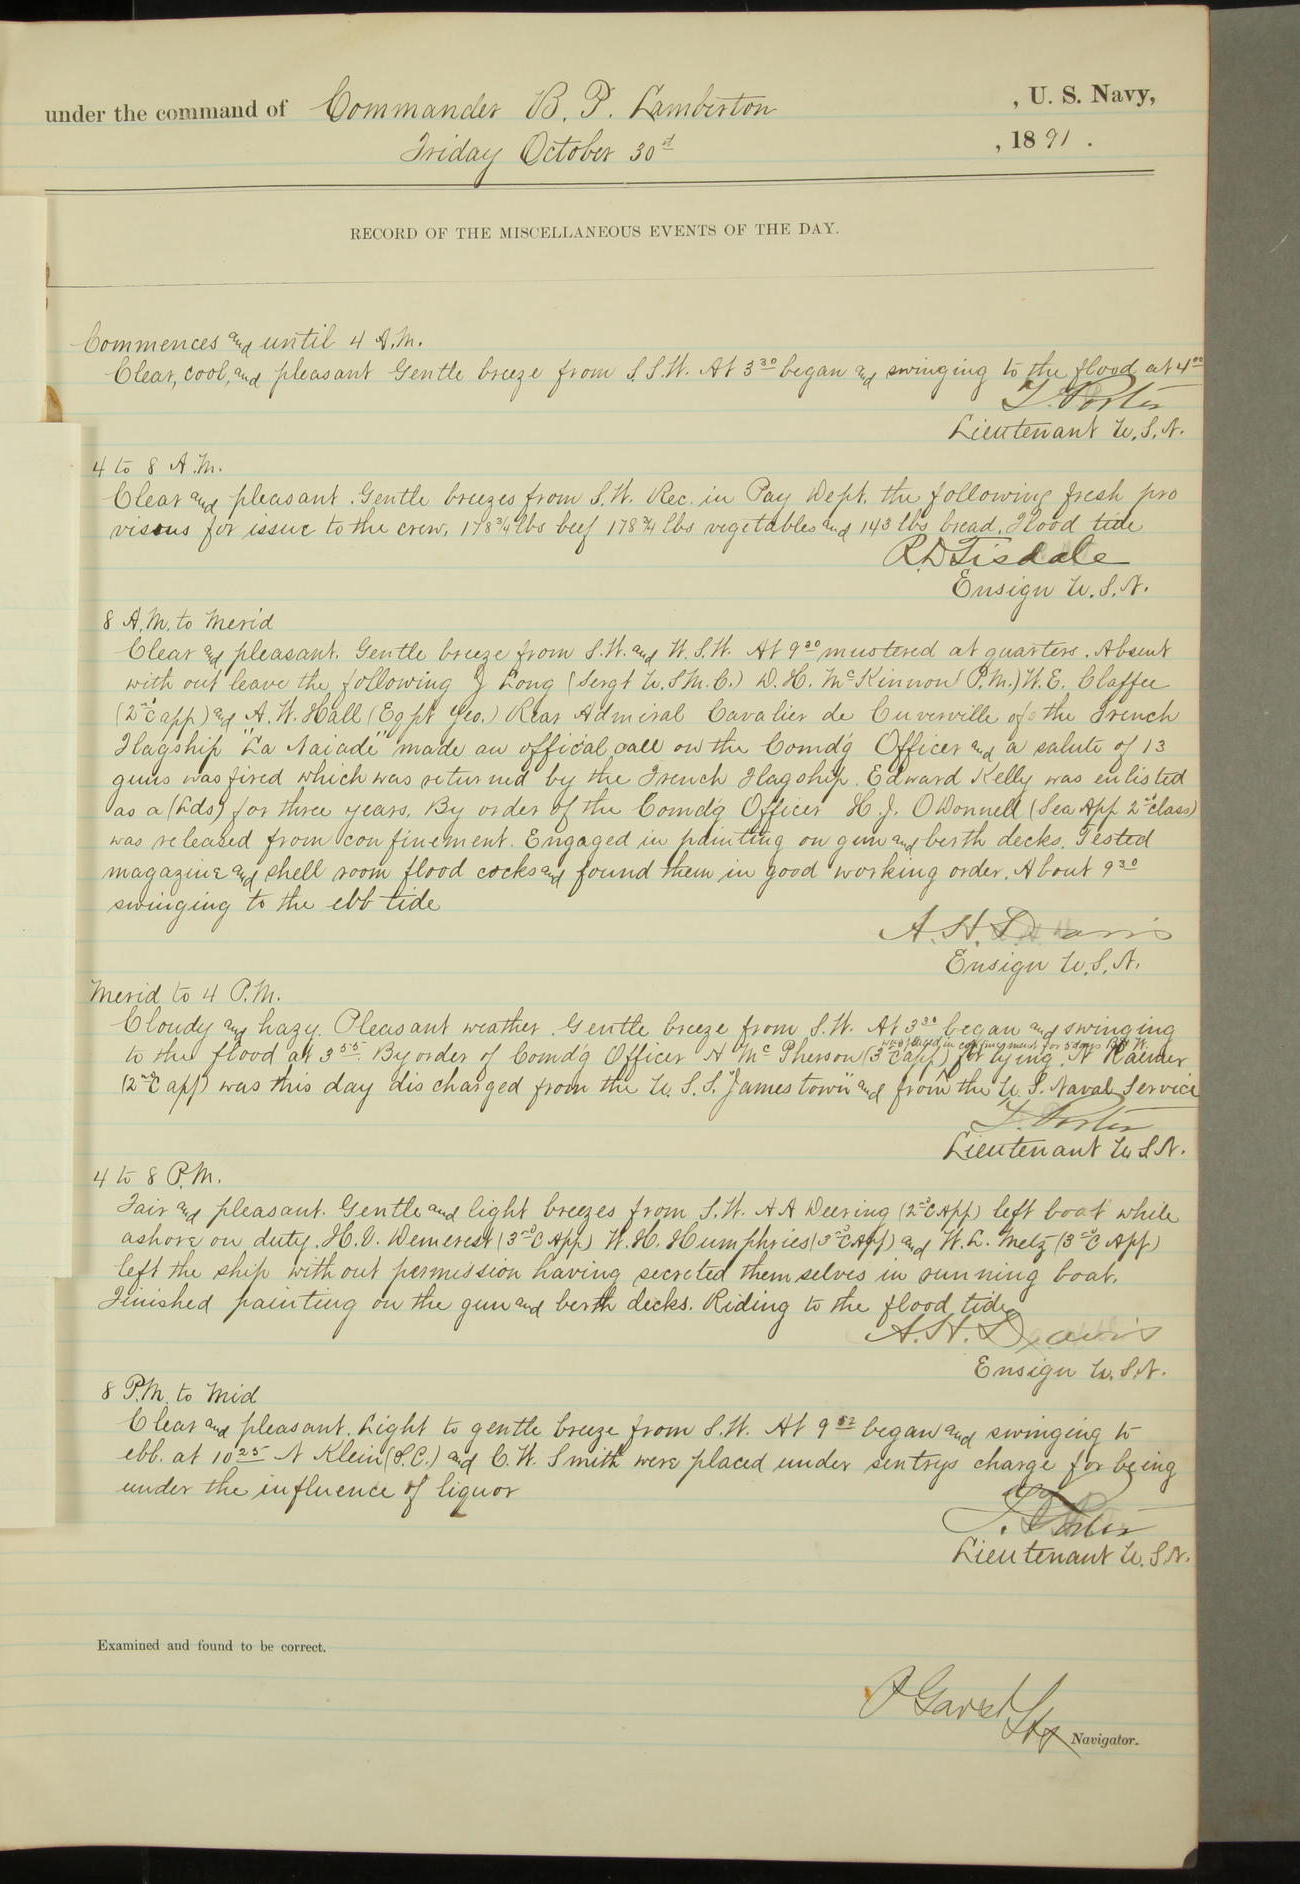 under the command of Commander B. P. Lamberton , U. S. Navy,
Friday October 30st , 1891 .
RECORD OF THE MISCELLANEOUS EVENTS OF THE DAY.
Commences and until 4 A.M.
Clear, cool, and pleasant Gentle breeze from S.S.W. At 3 30 began and swinging to the flood at 4 00
T. Porter
Lieutenant U.S.N.
4 to 8 A.M.
Clear and pleasant. Gentle breezes from S.W. Rec. in Pay Dept. the following fresh pro
visons for issue to the crew. 178 3/4 lbs beef 178 3/4 lbs vegetables and 143 lbs bread. Flood tide
R.D Tisdale
Ensign U.S.N.
8 A.M. to Merid
Clear and pleasant. Gentle breeze from S.W. and W.S.W. At 9 30 mustered at quarters. Absent
with out leave the following J Long (Sergt U.S.M.C.) D.H. McKinnon (P.M.) W.E. Claffee
(2nd C app) and A.W. Hall (Eqpt Yeo.) Rear Admiral Cavalier de Cuverville of the French
Flagship "La Naiade" made an offical call on the Comd'g Officer and a salute of 13
guns was fired which was returned by the French Flagship. Edward Kelly was enlisted
as a (Lds) for three years. By order of the Comd'g Officer H.J. O'Donnell (Sea App 2nd class)
was released from confinement. Engaged in painting on gun and berth decks. Tested
magazine and shell room flood cocks and found them in good working order. About 9 30
swinging to the ebb tide
A.H. Davis
Ensign U.S.N.
Merid to 4 P.M.
Cloudy and hazy. Pleasant weather. Gentle breeze from S.W. At 3 30 began and swinging
to the flood at 3 55. By order of Comd'g Officer A McPherson (3rd C app) was placed in confinement for 5 days B & W. for lying. N Raemer
(2nd C app) was this day discharged from the U.S.S. "Jamestown" and from the U.S. Naval Service
T. Porter
Lieutenant U.S.N.
4 to 8 P.M.
Fair and pleasant. Gentle and light breezes from S.W. A A Deering (2nd C App) left boat while
ashore on duty. H.V. Demerest (3rd C App) W.H. Humphries (3rd C App) and W.L. Metz (3rd C App)
left the ship with out permission having secreted them selves in running boat.
Finished painting on the gun and berth decks. Riding to the flood tide
A.H. Davis
Ensign U.S.N.
8 P.M. to Mid
Clear and pleasant. Light to gentle breeze from S.W. At 9 52 began and swinging to
ebb. at 10 25 N Klein (S.C.) and C.W. Smith were placed under sentrys charge for being
under the influence of liquor
T. Porter
Lieutenant U.S.N.
Examined and found to be correct.
P Garst
Navigator.